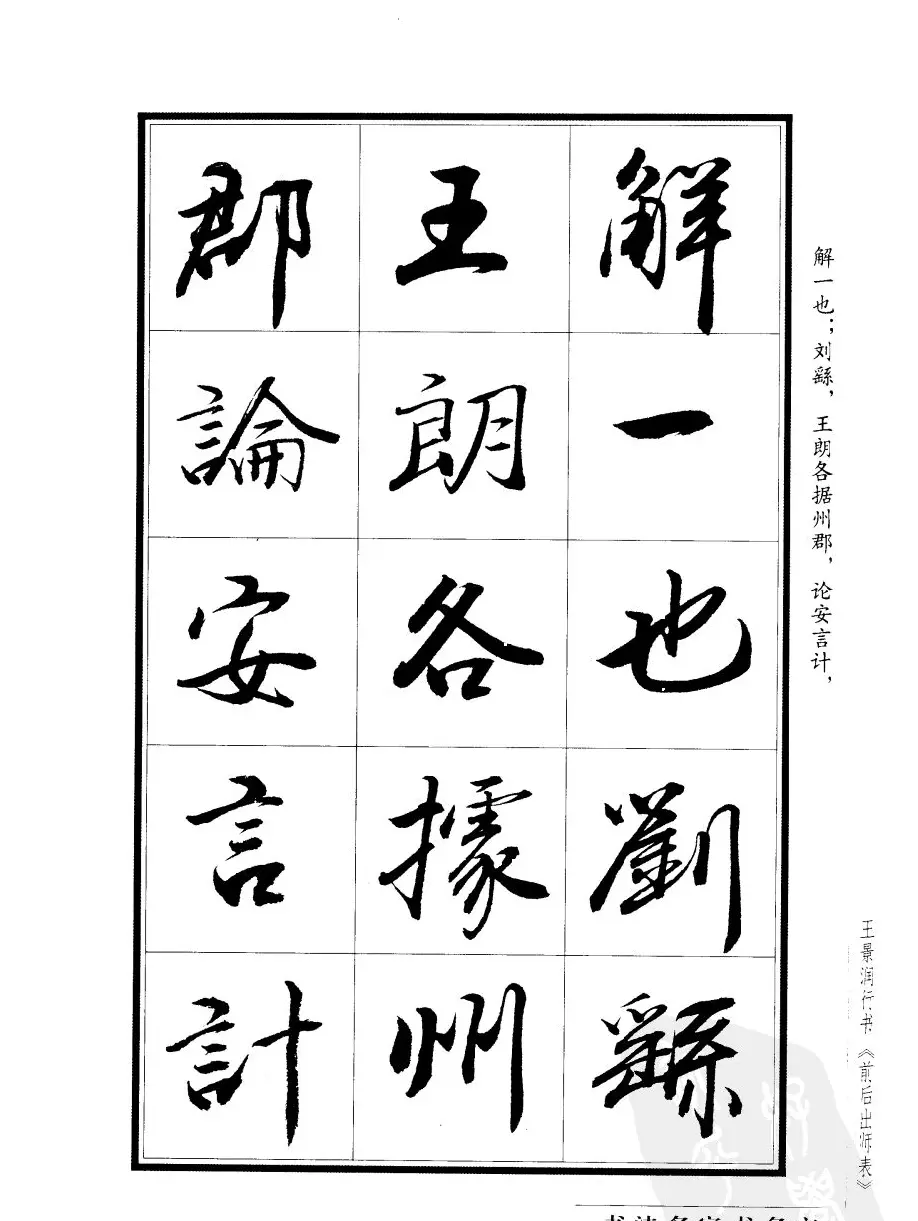 解一也劉繇
王朗各據州
郡論安言計
解一也；刘繇，王朗各据州郡，论安言计，
王景润行书《前后出师表》